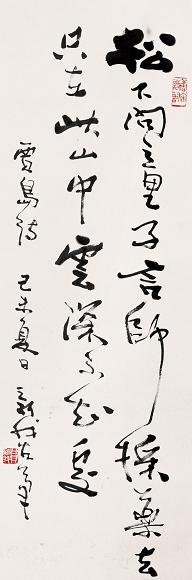 松下问童子言師採藥去
只在此山中雲深不知處
賈島詩
己未夏日